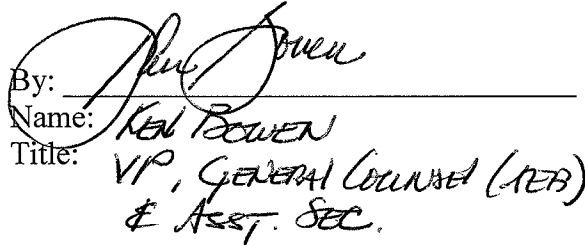 By: Ken Bowen
Name: KEN BOWEN
Title: VP, GENERAL COUNSEL
& ASST. SEC.